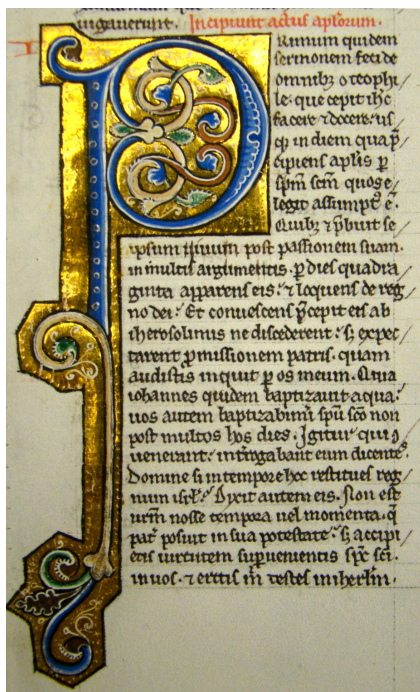 uigauerunt. Incipiunt actus aplorum.
PRimum quidem
sermonem feci de
omnibz o teophi
le. que cepit ihc
facere & docere. us
qz in diem qua p̄
cipiens aplis p
spm scm quos e
legit assumpt' ē.
Quibz & p̄buit se
ipsum uiuum post passionem suam.
in multis argumentis. p dies quadra
ginta apparens eis. & loquens de reg
no dei. Et conuescens p̄cepit eis ab
iherosolimis ne discederent. s; expec
tarent p̄missionem patris. quam
audistis inquit p os meum. Quia
iohannes quidem baptizauit aqua.
uos autem baptizabimī spū scō non
post multos hos dies. Igitur qui 9
uenerant. int̄rogabant eum dicentē.
Domine si in tempore hoc restitues reg
num isrl'. Dixit autem eis. Non est
urm nosse tempora uel momenta. q̄
pat' posuit in sua potestate. s; accipi
etis uirtutem supuenientis spc sci.
in uos. & eritis m̄ testes in ihrlm.